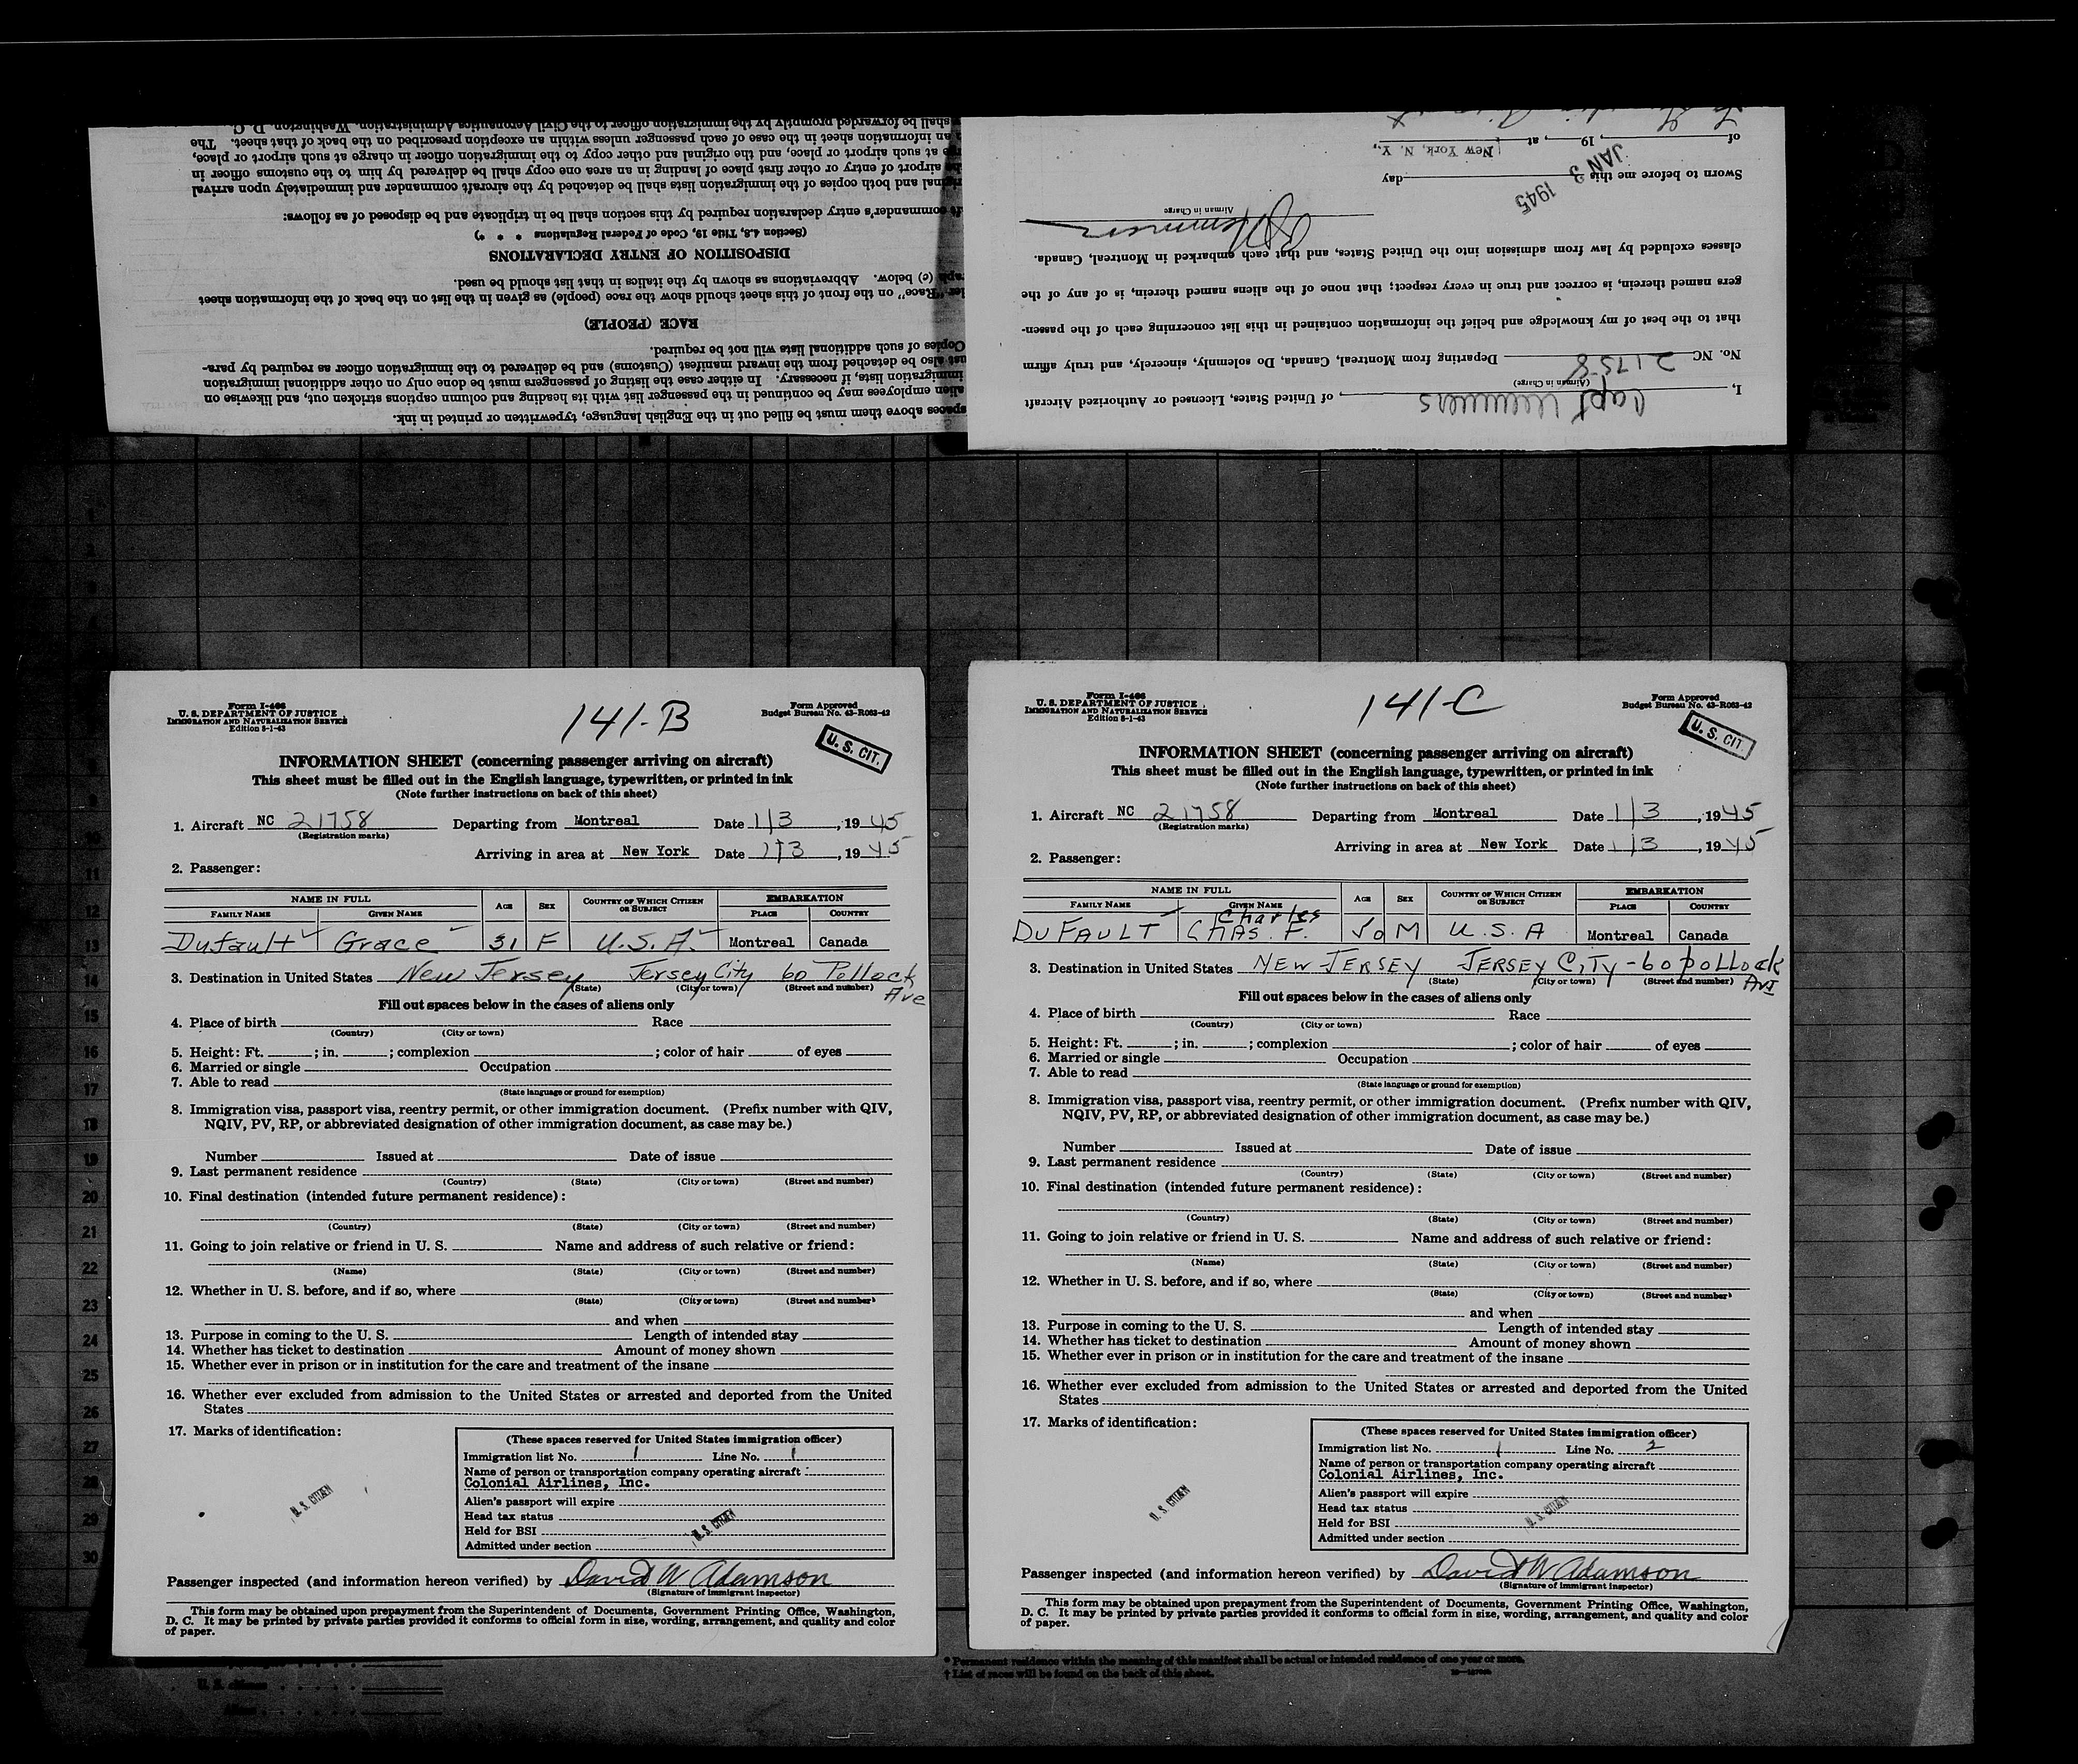 shall be forwarded promptly by the immigration officer to the Civil Aeronautics Administration, Washington, D. C.
an information sheet in the case of each passenger unless within an exception prescribed on the back of that sheet. The
at such airport or place, and the original and other copy to the immigration officer in charge at such airport or place,
airport of entry or other first place of landing in an area one copy shall be delivered by him to the customs officer in
and both copies of the immigration lists shall be detached by the aircraft commander and immediately upon arrival
commander's entry declaration required by this section shall be in triplicate and be disposed of as follows:
(Section 4.8, Title 19, Code of Federal Regulations * * *)
DISPOSITION OF ENTRY DECLARATIONS
(c) below. Abbreviations as shown by the italics in that list should be used.
"Race" on the front of this sheet should show the race (people) as given in the list on the back of the information sheet
RACE (PEOPLE)
Copies of such additional lists will not be required.
also be detached from the inward manifest (Customs) and be delivered to the immigration officer as required by para-
immigration lists, if necessary. In either case the listing of passengers must be done only on other additional immigration
alien employees may be continued in the passenger list with its heading and column captions stricken out, and likewise on
spaces above them must be filled out in the English language, typewritten or printed in ink.
I, Capt , of United States, Licensed or Authorized Aircraft
(Airman in Charge)
No. NC 21758 Departing from Montreal, Canada, Do solemnly, sincerely, and truly affirm
that to the best of my knowledge and belief the information contained in this list concerning each of the passen-
gers named therein, is correct and true in every respect; that none of the aliens named therein, is of any of the
classes excluded by law from admission into the United States, and that each embarked in Montreal, Canada.
Airman in Charge
Sworn to before me this day
JAN 3 1945
of , 19 , at New York, N. Y.,
Form I-466
U. S. DEPARTMENT OF JUSTICE
IMMIGRATION AND NATURALIZATION SERVICE
Edition 8-1-43
141-B
Form Approved
Budget Bureau No. 43-R063-42
U. S. CIT.
INFORMATION SHEET (concerning passenger arriving on aircraft)
This sheet must be filled out in the English language, typewritten, or printed in ink
(Note further instructions on back of this sheet)
1. Aircraft NC 21758 Departing from Montreal Date 1/3 , 19 45
(Registration marks)
Arriving in area at New York Date 1/3 , 19 45
2. Passenger:
NAME IN FULL AGE SEX COUNTRY OF WHICH CITIZEN OR SUBJECT EMBARKATION
FAMILY NAME GIVEN NAME PLACE COUNTRY
Dufault Grace 31 F U.S.A. Montreal Canada
3. Destination in United States New Jersey Jersey City 60 Pollock Ave
(State) (City or town) (Street and number)
Fill out spaces below in the cases of aliens only
4. Place of birth Race
(Country) (City or town)
5. Height: Ft. ; in. ; complexion ; color of hair of eyes
6. Married or single Occupation
7. Able to read
(State language or ground for exemption)
8. Immigration visa, passport visa, reentry permit, or other immigration document. (Prefix number with QIV,
NQIV, PV, RP, or abbreviated designation of other immigration document, as case may be.)
Number Issued at Date of issue
9. Last permanent residence
(Country) (State) (City or town) (Street and number)
10. Final destination (intended future permanent residence):
(Country) (State) (City or town) (Street and number)
11. Going to join relative or friend in U. S. Name and address of such relative or friend:
(Name) (State) (City or town) (Street and number)
12. Whether in U. S. before, and if so, where
(State) (City or town) (Street and number)
and when
13. Purpose in coming to the U. S. Length of intended stay
14. Whether has ticket to destination Amount of money shown
15. Whether ever in prison or in institution for the care and treatment of the insane
16. Whether ever excluded from admission to the United States or arrested and deported from the United
States
17. Marks of identification:
U. S. CITIZEN
(These spaces reserved for United States immigration officer)
Immigration list No. 1 Line No. 1
Name of person or transportation company operating aircraft
Colonial Airlines, Inc.
Alien's passport will expire
Head tax status
Held for BSI
U. S. CITIZEN
Admitted under section
Passenger inspected (and information hereon verified) by David W Adamson
(Signature of immigrant inspector)
This form may be obtained upon prepayment from the Superintendent of Documents, Government Printing Office, Washington,
D. C. It may be printed by private parties provided it conforms to official form in size, wording, arrangement, and quality and color
of paper.
Form I-466
U. S. DEPARTMENT OF JUSTICE
IMMIGRATION AND NATURALIZATION SERVICE
Edition 8-1-43
141-C
Form Approved
Budget Bureau No. 43-R063-42
U. S. CIT.
INFORMATION SHEET (concerning passenger arriving on aircraft)
This sheet must be filled out in the English language, typewritten, or printed in ink
(Note further instructions on back of this sheet)
1. Aircraft NC 21758 Departing from Montreal Date 1/3 , 19 45
(Registration marks)
Arriving in area at New York Date 1/3 , 19 45
2. Passenger:
NAME IN FULL AGE SEX COUNTRY OF WHICH CITIZEN OR SUBJECT EMBARKATION
FAMILY NAME GIVEN NAME PLACE COUNTRY
Charles
DUFAULT CHAS. F. M U.S.A Montreal Canada
3. Destination in United States NEW JERSEY JERSEY CITY - 60 POLLOCK AVE
(State) (City or town) (Street and number)
Fill out spaces below in the cases of aliens only
4. Place of birth Race
(Country) (City or town)
5. Height: Ft. ; in. ; complexion ; color of hair of eyes
6. Married or single Occupation
7. Able to read
(State language or ground for exemption)
8. Immigration visa, passport visa, reentry permit, or other immigration document. (Prefix number with QIV,
NQIV, PV, RP, or abbreviated designation of other immigration document, as case may be.)
Number Issued at Date of issue
9. Last permanent residence
(Country) (State) (City or town) (Street and number)
10. Final destination (intended future permanent residence):
(Country) (State) (City or town) (Street and number)
11. Going to join relative or friend in U. S. Name and address of such relative or friend:
(Name) (State) (City or town) (Street and number)
12. Whether in U. S. before, and if so, where
(State) (City or town) (Street and number)
and when
13. Purpose in coming to the U. S. Length of intended stay
14. Whether has ticket to destination Amount of money shown
15. Whether ever in prison or in institution for the care and treatment of the insane
16. Whether ever excluded from admission to the United States or arrested and deported from the United
States
17. Marks of identification:
U. S. CITIZEN
(These spaces reserved for United States immigration officer)
Immigration list No. 1 Line No. 2
Name of person or transportation company operating aircraft
Colonial Airlines, Inc.
Alien's passport will expire
Head tax status
Held for BSI
U. S. CITIZEN
Admitted under section
Passenger inspected (and information hereon verified) by David W Adamson
(Signature of immigrant inspector)
This form may be obtained upon prepayment from the Superintendent of Documents, Government Printing Office, Washington,
D. C. It may be printed by private parties provided it conforms to official form in size, wording, arrangement, and quality and color
of paper.
* Permanent residence within the meaning of this manifest shall be actual or intended residence of one year or more.
† List of races will be found on the back of this sheet.
11
12
13
14
15
16
17
18
19
20
21
22
23
24
25
26
27
28
29
30
U. S. citizens
Aliens